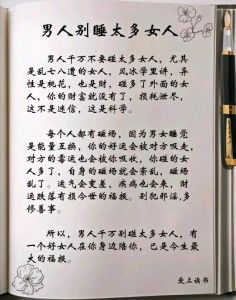 男人别睡太多女人
男人千万不要碰太多女人，尤其
是乱七八遭的女人，风水学里讲，异
性是桃花，也是财，碰多了外面的女
人，你的财富就没有了，损耗泄尽，
这不是迷信，这是科学。
每个人都有磁场，因为男女睡觉
是能量互换，你的好运会被对方吸走，
对方的霉运也会被你吸收，你碰的女
人多了，自身的磁场就会紊乱，磁场
乱了。运气会变差，疾病也会来，财
运跌落有损今世的福报。别犯邪淫，多
修善事。
所以，男人千万别碰太多女人，有
一个好女人在你身边陪你，已是今生最
大的福报。
爱上读书